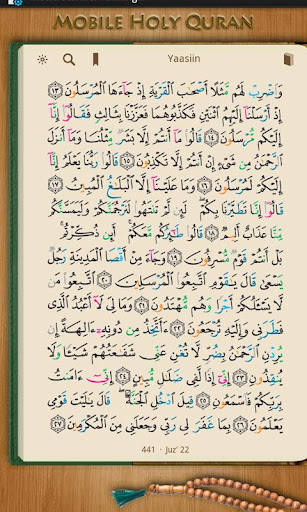 MOBILE HOLY QURAN
Yaasiin
وَٱضْرِبْ لَهُم مَّثَلًا أَصْحَٰبَ ٱلْقَرْيَةِ إِذْ جَآءَهَا ٱلْمُرْسَلُونَ ١٣
إِذْ أَرْسَلْنَآ إِلَيْهِمُ ٱثْنَيْنِ فَكَذَّبُوهُمَا فَعَزَّزْنَا بِثَالِثٍ فَقَالُوٓا۟ إِنَّآ
إِلَيْكُم مُّرْسَلُونَ ١٤ قَالُوا۟ مَآ أَنتُمْ إِلَّا بَشَرٌ مِّثْلُنَا وَمَآ أَنزَلَ
ٱلرَّحْمَٰنُ مِن شَىْءٍ إِنْ أَنتُمْ إِلَّا تَكْذِبُونَ ١٥ قَالُوا۟ رَبُّنَا يَعْلَمُ إِنَّآ
إِلَيْكُمْ لَمُرْسَلُونَ ١٦ وَمَا عَلَيْنَآ إِلَّا ٱلْبَلَٰغُ ٱلْمُبِينُ ١٧
قَالُوٓا۟ إِنَّا تَطَيَّرْنَا بِكُمْ ۖ لَئِن لَّمْ تَنتَهُوا۟ لَنَرْجُمَنَّكُمْ وَلَيَمَسَّنَّكُم
مِّنَّا عَذَابٌ أَلِيمٌ ١٨ قَالُوا۟ طَٰٓئِرُكُم مَّعَكُمْ ۚ أَئِن ذُكِّرْتُم ۚ
بَلْ أَنتُمْ قَوْمٌ مُّسْرِفُونَ ١٩ وَجَآءَ مِنْ أَقْصَا ٱلْمَدِينَةِ رَجُلٌ
يَسْعَىٰ قَالَ يَٰقَوْمِ ٱتَّبِعُوا۟ ٱلْمُرْسَلِينَ ٢٠ ٱتَّبِعُوا۟ مَن
لَّا يَسْـَٔلُكُمْ أَجْرًا وَهُم مُّهْتَدُونَ ٢١ وَمَا لِىَ لَآ أَعْبُدُ ٱلَّذِى
فَطَرَنِى وَإِلَيْهِ تُرْجَعُونَ ٢٢ ءَأَتَّخِذُ مِن دُونِهِۦٓ ءَالِهَةً إِن
يُرِدْنِ ٱلرَّحْمَٰنُ بِضُرٍّ لَّا تُغْنِ عَنِّى شَفَٰعَتُهُمْ شَيْـًٔا وَلَا
يُنقِذُونِ ٢٣ إِنِّىٓ إِذًا لَّفِى ضَلَٰلٍ مُّبِينٍ ٢٤ إِنِّىٓ ءَامَنتُ
بِرَبِّكُمْ فَٱسْمَعُونِ ٢٥ قِيلَ ٱدْخُلِ ٱلْجَنَّةَ ۖ قَالَ يَٰلَيْتَ قَوْمِى
يَعْلَمُونَ ٢٦ بِمَا غَفَرَ لِى رَبِّى وَجَعَلَنِى مِنَ ٱلْمُكْرَمِينَ ٢٧
441 · Juz' 22